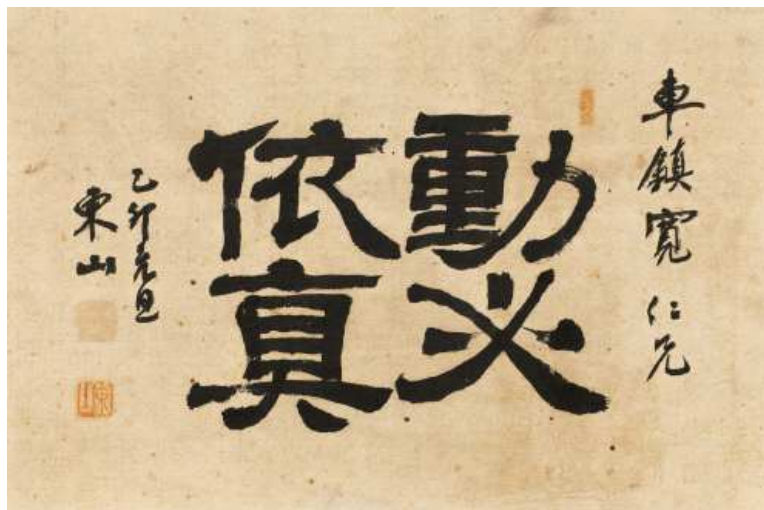 車鎮寬 仁兄
動必
依真
乙卯元旦
東山